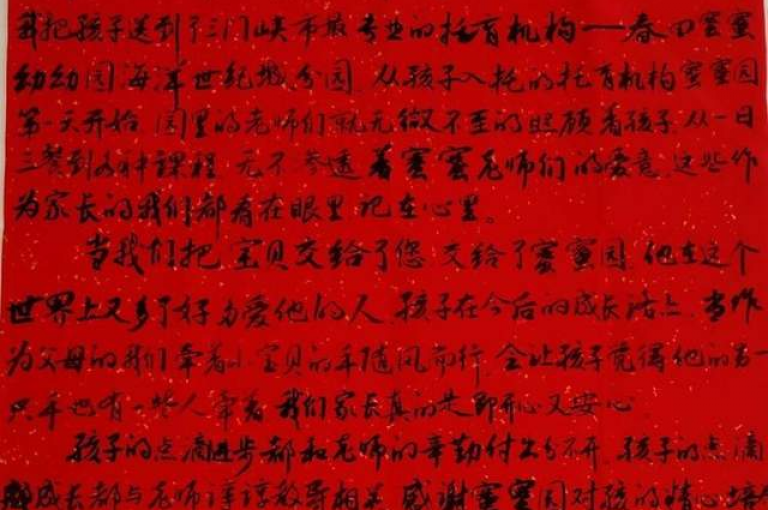 我把孩子送到了三门峡市最专业的托育机构——春田蜜蜜
幼幼园海洋世纪城分园,从孩子入托的托育机构蜜蜜园
第一天开始,园里的老师们就无微不至的照顾着孩子,从一日
三餐到各种课程,无不参透着蜜蜜老师们的爱意,这些作
为家长的我们都看在眼里记在心里。
当我们把宝贝交给了您,交给了蜜蜜园,他在这个
世界上又多了好多爱他的人,孩子在今后的成长路上,当作
为父母的我们牵着小宝贝的手随风前行,会让孩子觉得他的另一
只手也有一些人牵着,我们家长真的是即开心又安心。
孩子的点滴进步都和老师的辛勤付出分不开,孩子的点滴
成长都与老师谆谆教导相关,感谢蜜蜜园对孩的精心培